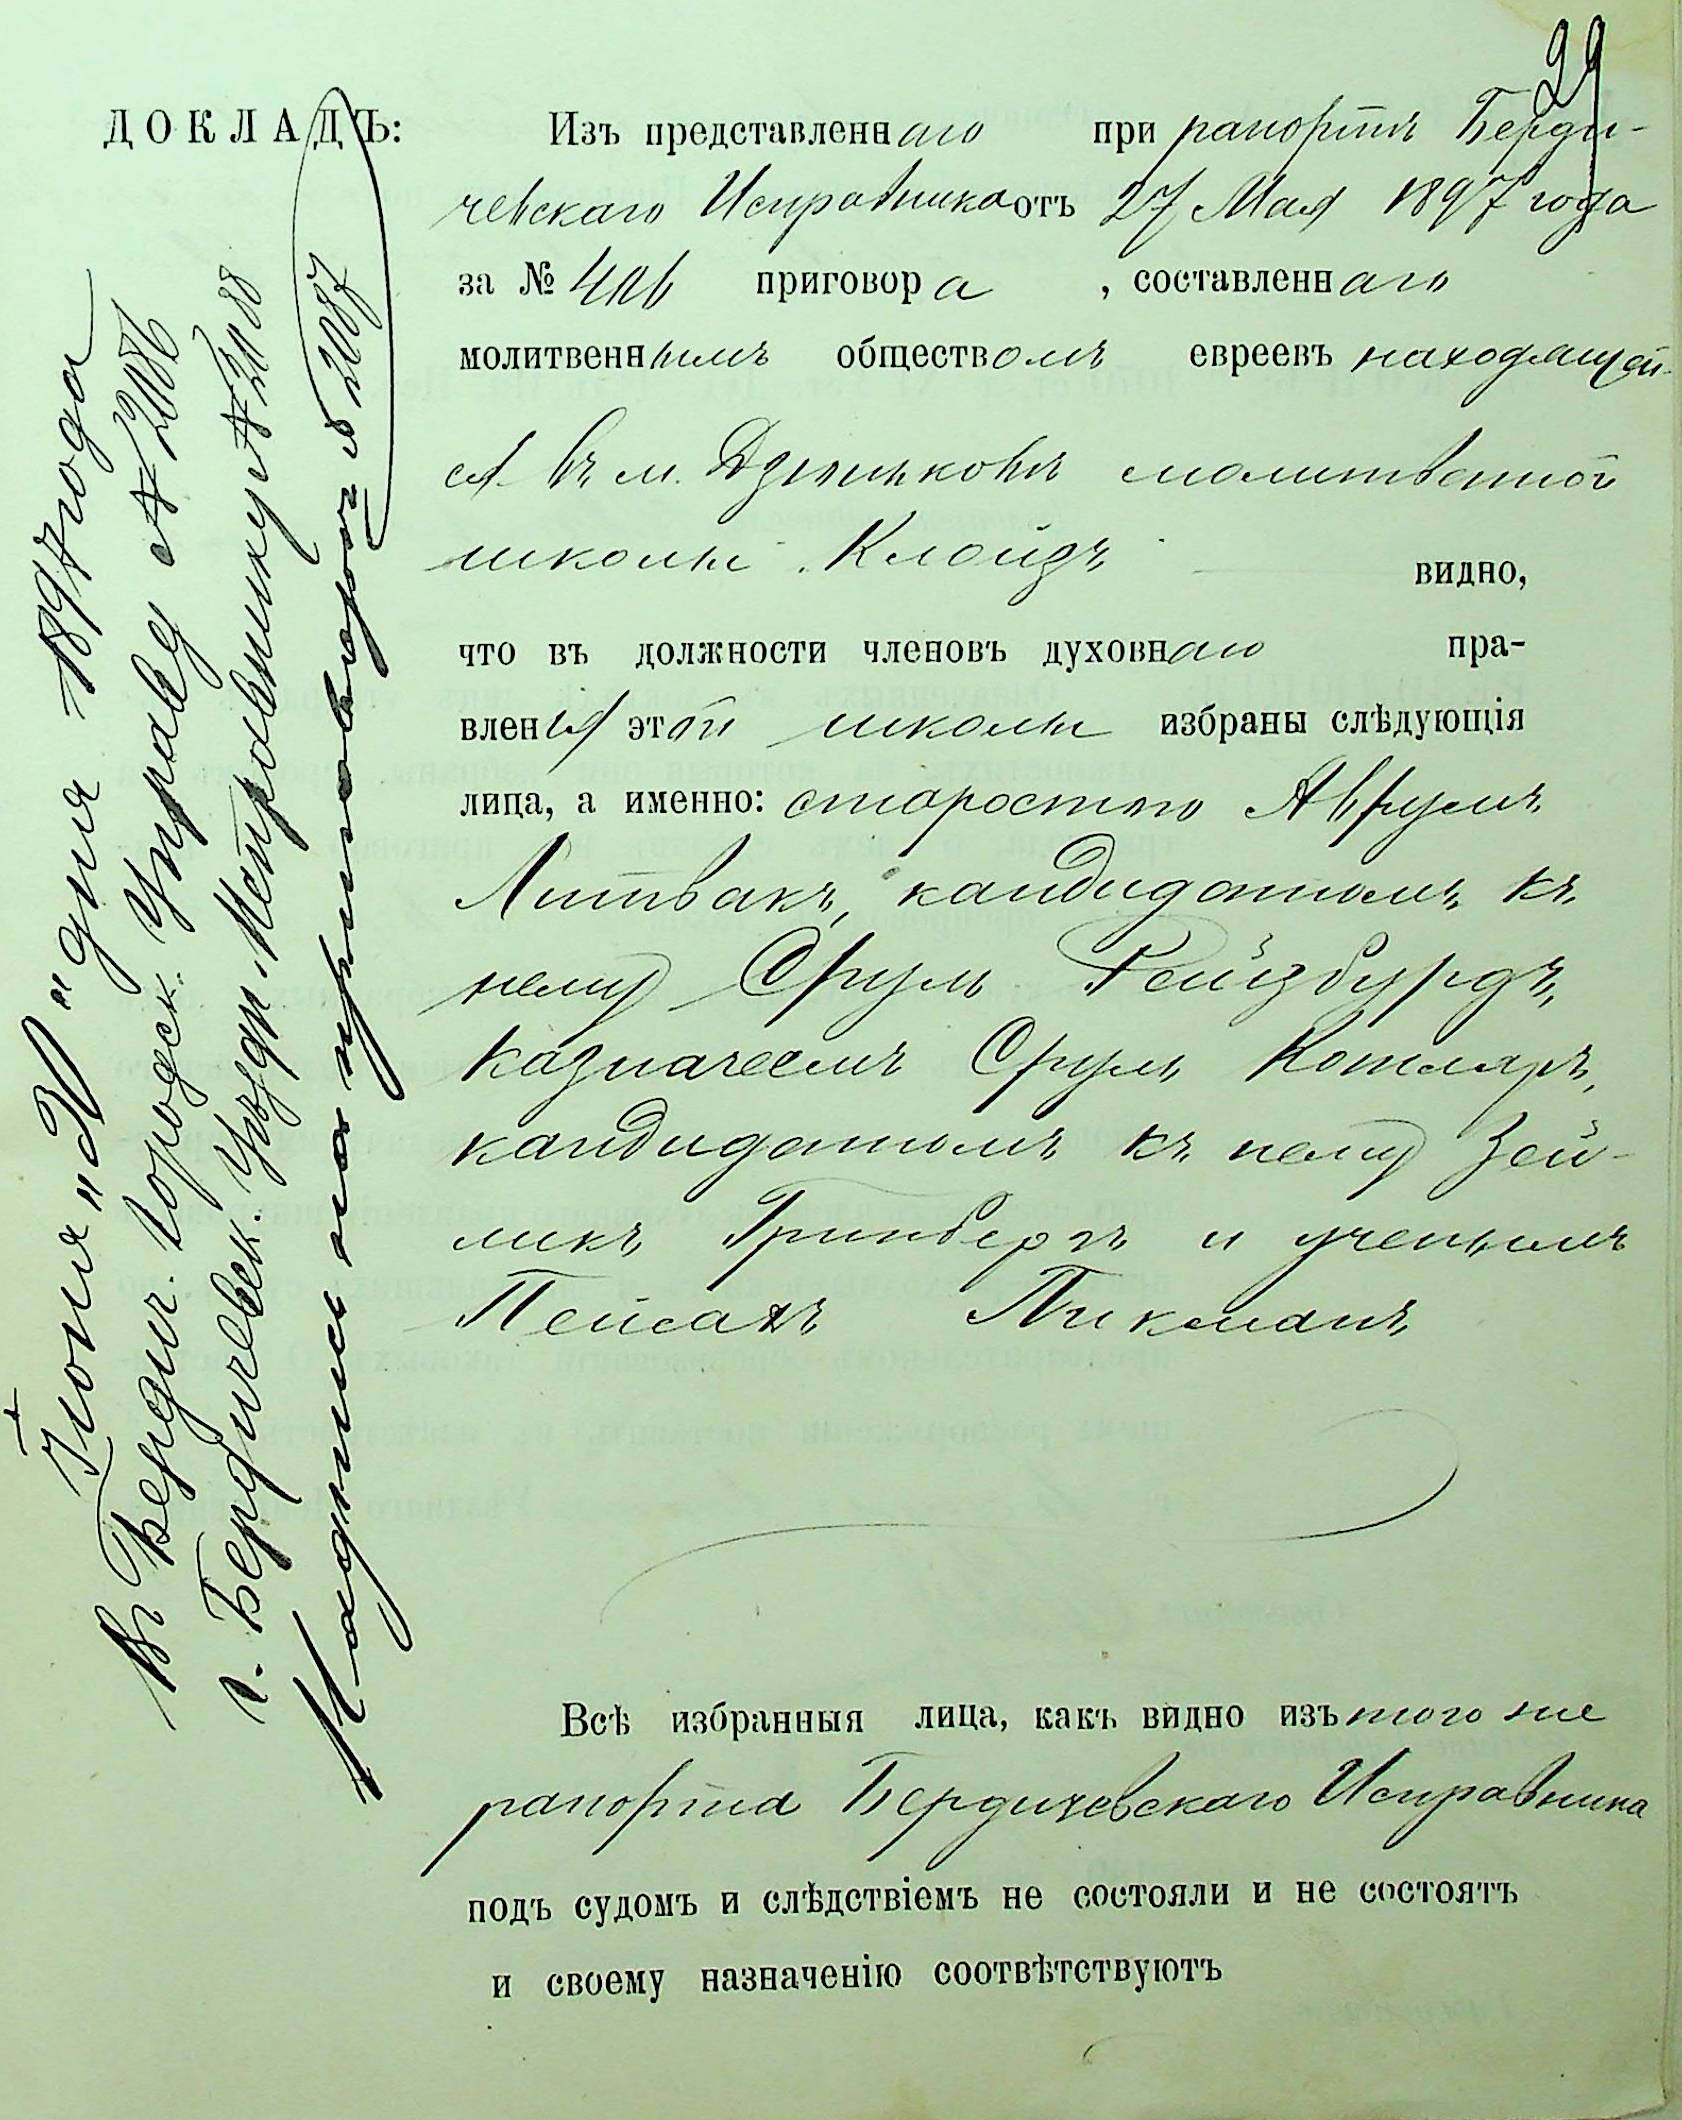 29
ДОКЛАДЪ:
Изъ представленнаго при рапортѣ Берди-
чевскаго Исправника отъ 27 Мая 1897 года
за № 406 приговора, составленнаго
молитвеннымъ обществомъ евреевъ находящей-
ся въ м. Дзюньковѣ молитвенной
школы Клойзъ видно,
что въ должности членовъ духовнаго пра-
вленія этой школы избраны слѣдующія
лица, а именно: старостою Аврумъ
Литвакъ, кандидатомъ къ
нему Сруль Гейзбурдъ,
казначеемъ Сруль Котляръ,
кандидатомъ къ нему Зей-
ликъ Гринбергъ и ученымъ
Пейсахъ Пикманъ
Всѣ избранныя лица, какъ видно изъ того же
рапорта Бердичевскаго Исправника
подъ судомъ и слѣдствіемъ не состояли и не состоятъ
и своему назначенію соотвѣтствуютъ
Іюня "30" дня 1897 года
въ Бердич. Городск. Управу № 2086
г. Бердичевск. Уѣздн. Исправнику № 2088
Надпись на приговорѣ № 2087